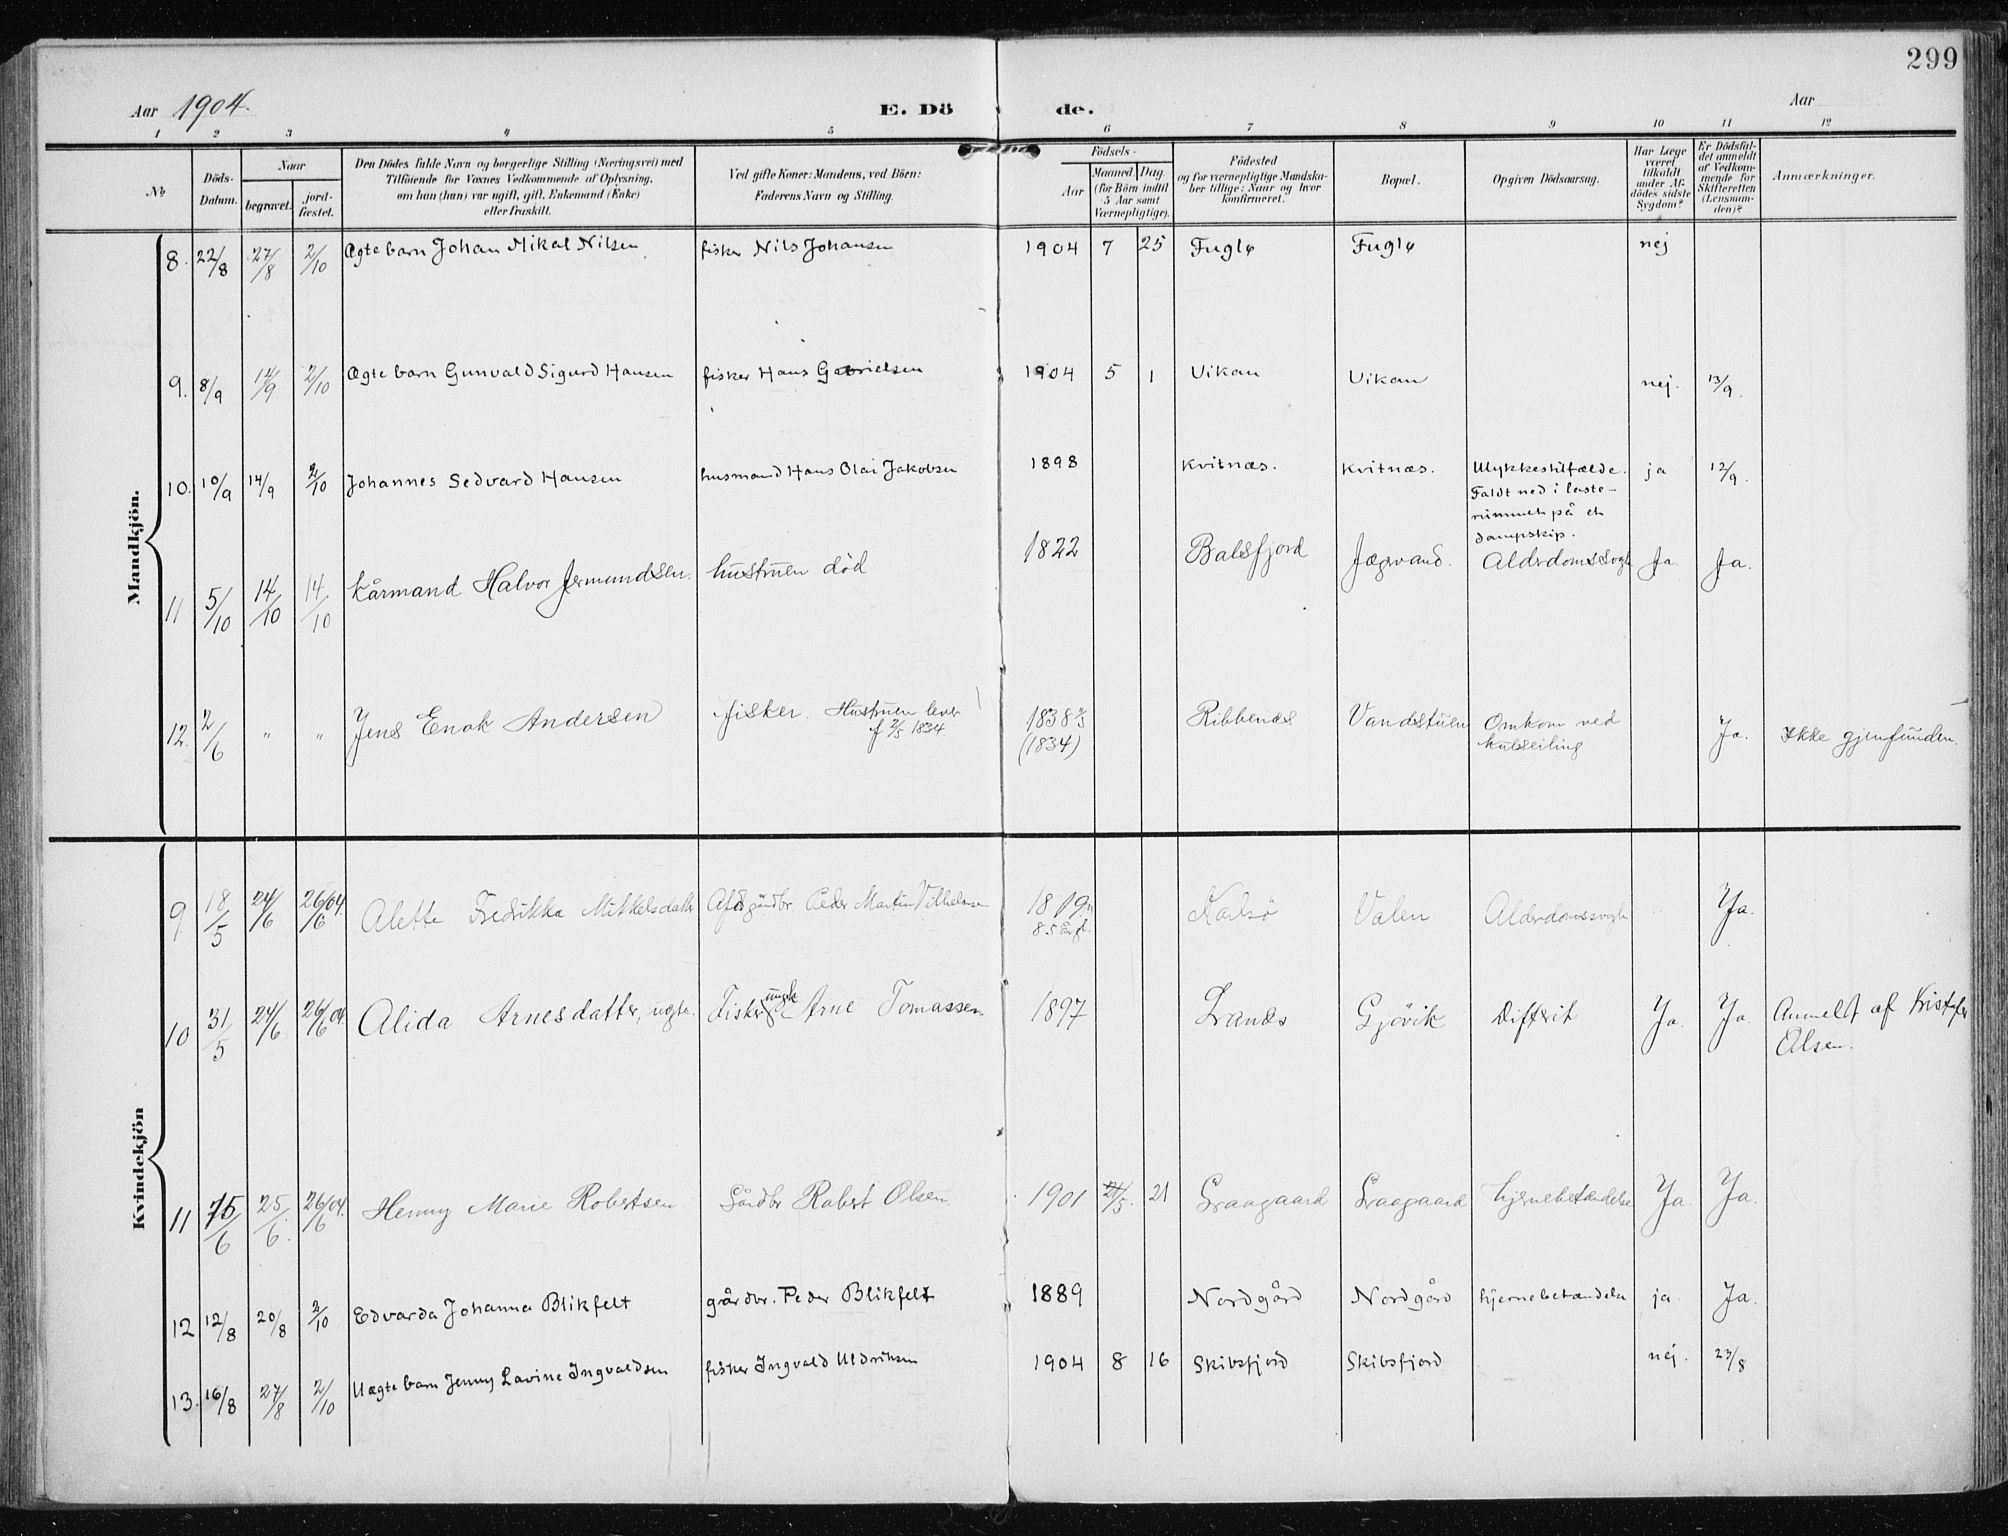 299
Aar 1904.
E. Dö de.
Aar
1 2 3 4 5 6 7 8 9 10 11 12
No
Döds-Datum.
Naar
begravet.
jord-fæstet.
Den Dödes fulde Navn og borgerlige Stilling (Næringsvei) med
Tilföiende for Voxnes Vedkommende af Oplysning,
om han (hun) var ugift, gift, Enkemand (Enke)
eller fraskilt.
Ved gifte Koner: Mandens, ved Börn:
Faderens Navn og Stilling.
Födsels-
Aar
Maaned. Dag.
(for Börn indtil
5 Aar samt
Værnepligtige).
Födested
og for værnepligtige Mandska-
ber tillige: Naar og hvor
konfirmeret.
Bopæl.
Opgiven Dödsaarsag.
Har Læge
været
tilkaldt
under Af-
dödes sidste
Sygdom?
Er Dödsfal-
det anmeldt
af Vedkom-
mende for
Skifteretten
(Lensman-
den)?
Anmærkninger.
Mandkjön.
8. 22/8 27/8 2/10 Ægte barn Johan Mikal Nilsen fisker Nils Johansen 1904 7 25 Fuglø Fuglø nej
9. 8/9 12/9 2/10 Ægte barn Gunvald Sigurd Hansen fisker Hans Gabrielsen 1904 5 1 Vikan Vikan nej. 13/9.
10. 10/9 14/9 2/10 Johannes Sedvard Hansen husmand Hans Olai Jakobsen 1898 Kvitnæs. Kvitnæs. Ulykkestilfælde. ja 12/9.
Faldt ned i laste-
rummet på et
dampskip.
11 5/10 14/10 14/10 kårmand Halvor Jermundsen. hustruen död 1822 Balsfjord Jægervand. Alderdomssvagh Ja. Ja.
12. 2/6 " " Jens Enok Andersen fisker. Hustruen lever 1838 2/5 Ribbenes Vandstuen Omkom ved Ja. Ikke gjenfunden.
f 2/5 1834 (1834) kulseiling
Kvindekjön
9 18/5 24/6 26/6 04. Alette Fredrikka Mikkelsdatter Afd. gårdbr. Peder Martin Vilhelmsen 1819 Karlsö Valen Alderdomssvagh Ja.
85 år gl.
10 31/5 24/6 26/6 04. Alida Arnesdatter, uægte. Fisker ungk Arne Tomassen 1897 Grunds Gjövik Difterit Ja. Ja. Anmeldt af Kristofer
Olsen.
11 15/6 25/6. 26/6 04. Henny Marie Robertsen Gårdbr Robert Olsen 1901 21/5. 21 Graagaard Graagaard hjernebetændelse Ja. Ja.
12 12/8 20/8 2/10 Edvarda Johanna Blikfelt gårdbr. Peder Blikfelt 1889 Nordgård Nordgård hjernebetændelse ja. Ja.
13. 16/8 27/8 2/10 Uægte barn Jenny Lavine Ingvaldsen fisker Ingvald Uldriksen 1904 8 16 Skibsfjord Skibsfjord nej. 23/8